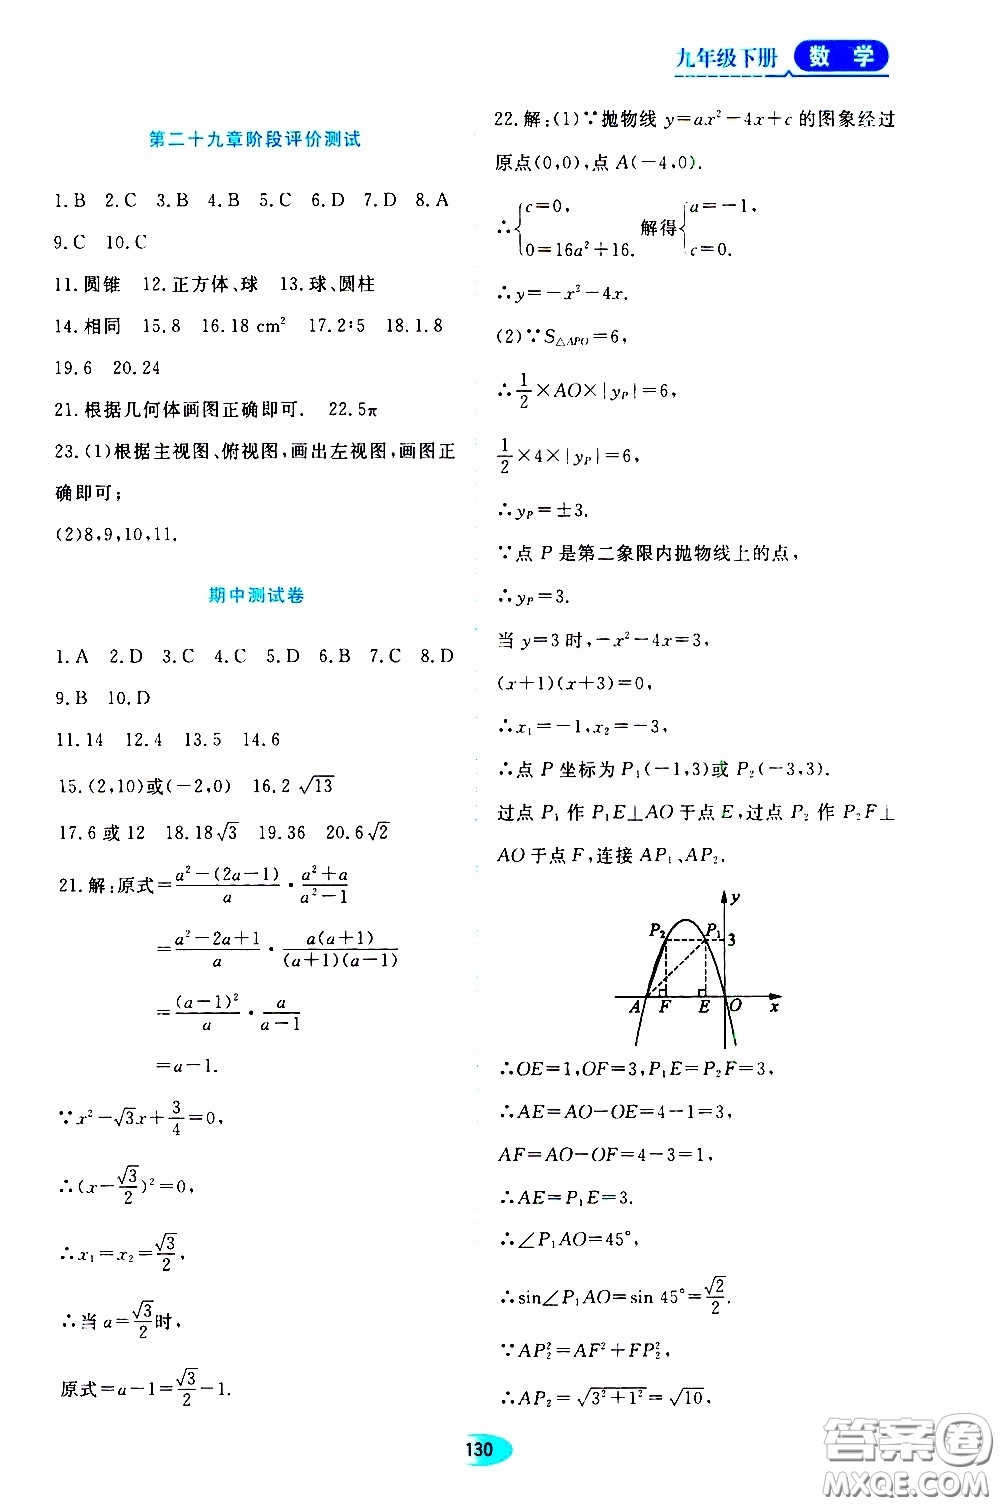 九年级下册 数学
第二十九章阶段评价测试
1.B 2.C 3.B 4.B 5.C 6.D 7.D 8.A
9.C 10.C
11.圆锥 12.正方体、球 13.球、圆柱
14.相同 15.8 16.18 cm² 17.2∶5 18.1.8
19.6 20.24
21.根据几何体画图正确即可. 22.5π
23.(1)根据主视图、俯视图,画出左视图,画图正
确即可;
(2)8,9,10,11.
期中测试卷
1.A 2.D 3.C 4.C 5.D 6.B 7.C 8.D
9.B 10.D
11.14 12.4 13.5 14.6
15.(2,10)或(-2,0) 16.2√13
17.6 或 12 18.18√3 19.36 20.6√2
21.解:原式=(a²-(2a-1))/a·(a²+a)/(a²-1)
=(a²-2a+1)/a·a(a+1)/((a+1)(a-1))
=(a-1)²/a·a/(a-1)
=a-1.
∵x²-√3x+3/4=0,
∴(x-√3/2)²=0,
∴x₁=x₂=√3/2,
∴当 a=√3/2时,
原式=a-1=√3/2-1.
22.解:(1)∵抛物线 y=ax²-4x+c 的图象经过
原点(0,0),点 A(-4,0).
∴{c=0, 0=16a²+16. 解得{a=-1, c=0.
∴y=-x²-4x.
(2)∵S△APO=6,
∴1/2×AO×|yP|=6,
1/2×4×|yP|=6,
∴yP=±3.
∵点 P 是第二象限内抛物线上的点,
∴yP=3.
当 y=3 时,-x²-4x=3,
(x+1)(x+3)=0,
∴x₁=-1,x₂=-3,
∴点 P 坐标为 P₁(-1,3)或 P₂(-3,3).
过点 P₁ 作 P₁E⊥AO 于点 E,过点 P₂ 作 P₂F⊥
AO 于点 F,连接 AP₁、AP₂.
y
P₂ P₁ 3
A F E O x
∴OE=1,OF=3,P₁E=P₂F=3,
∴AE=AO-OE=4-1=3,
AF=AO-OF=4-3=1,
∴AE=P₁E=3.
∴∠P₁AO=45°,
∴sin∠P₁AO=sin 45°=√2/2.
∵AP₂²=AF²+FP₂²,
∴AP₂=√(3²+1²)=√10,
130
答案圈
MXQE.COM